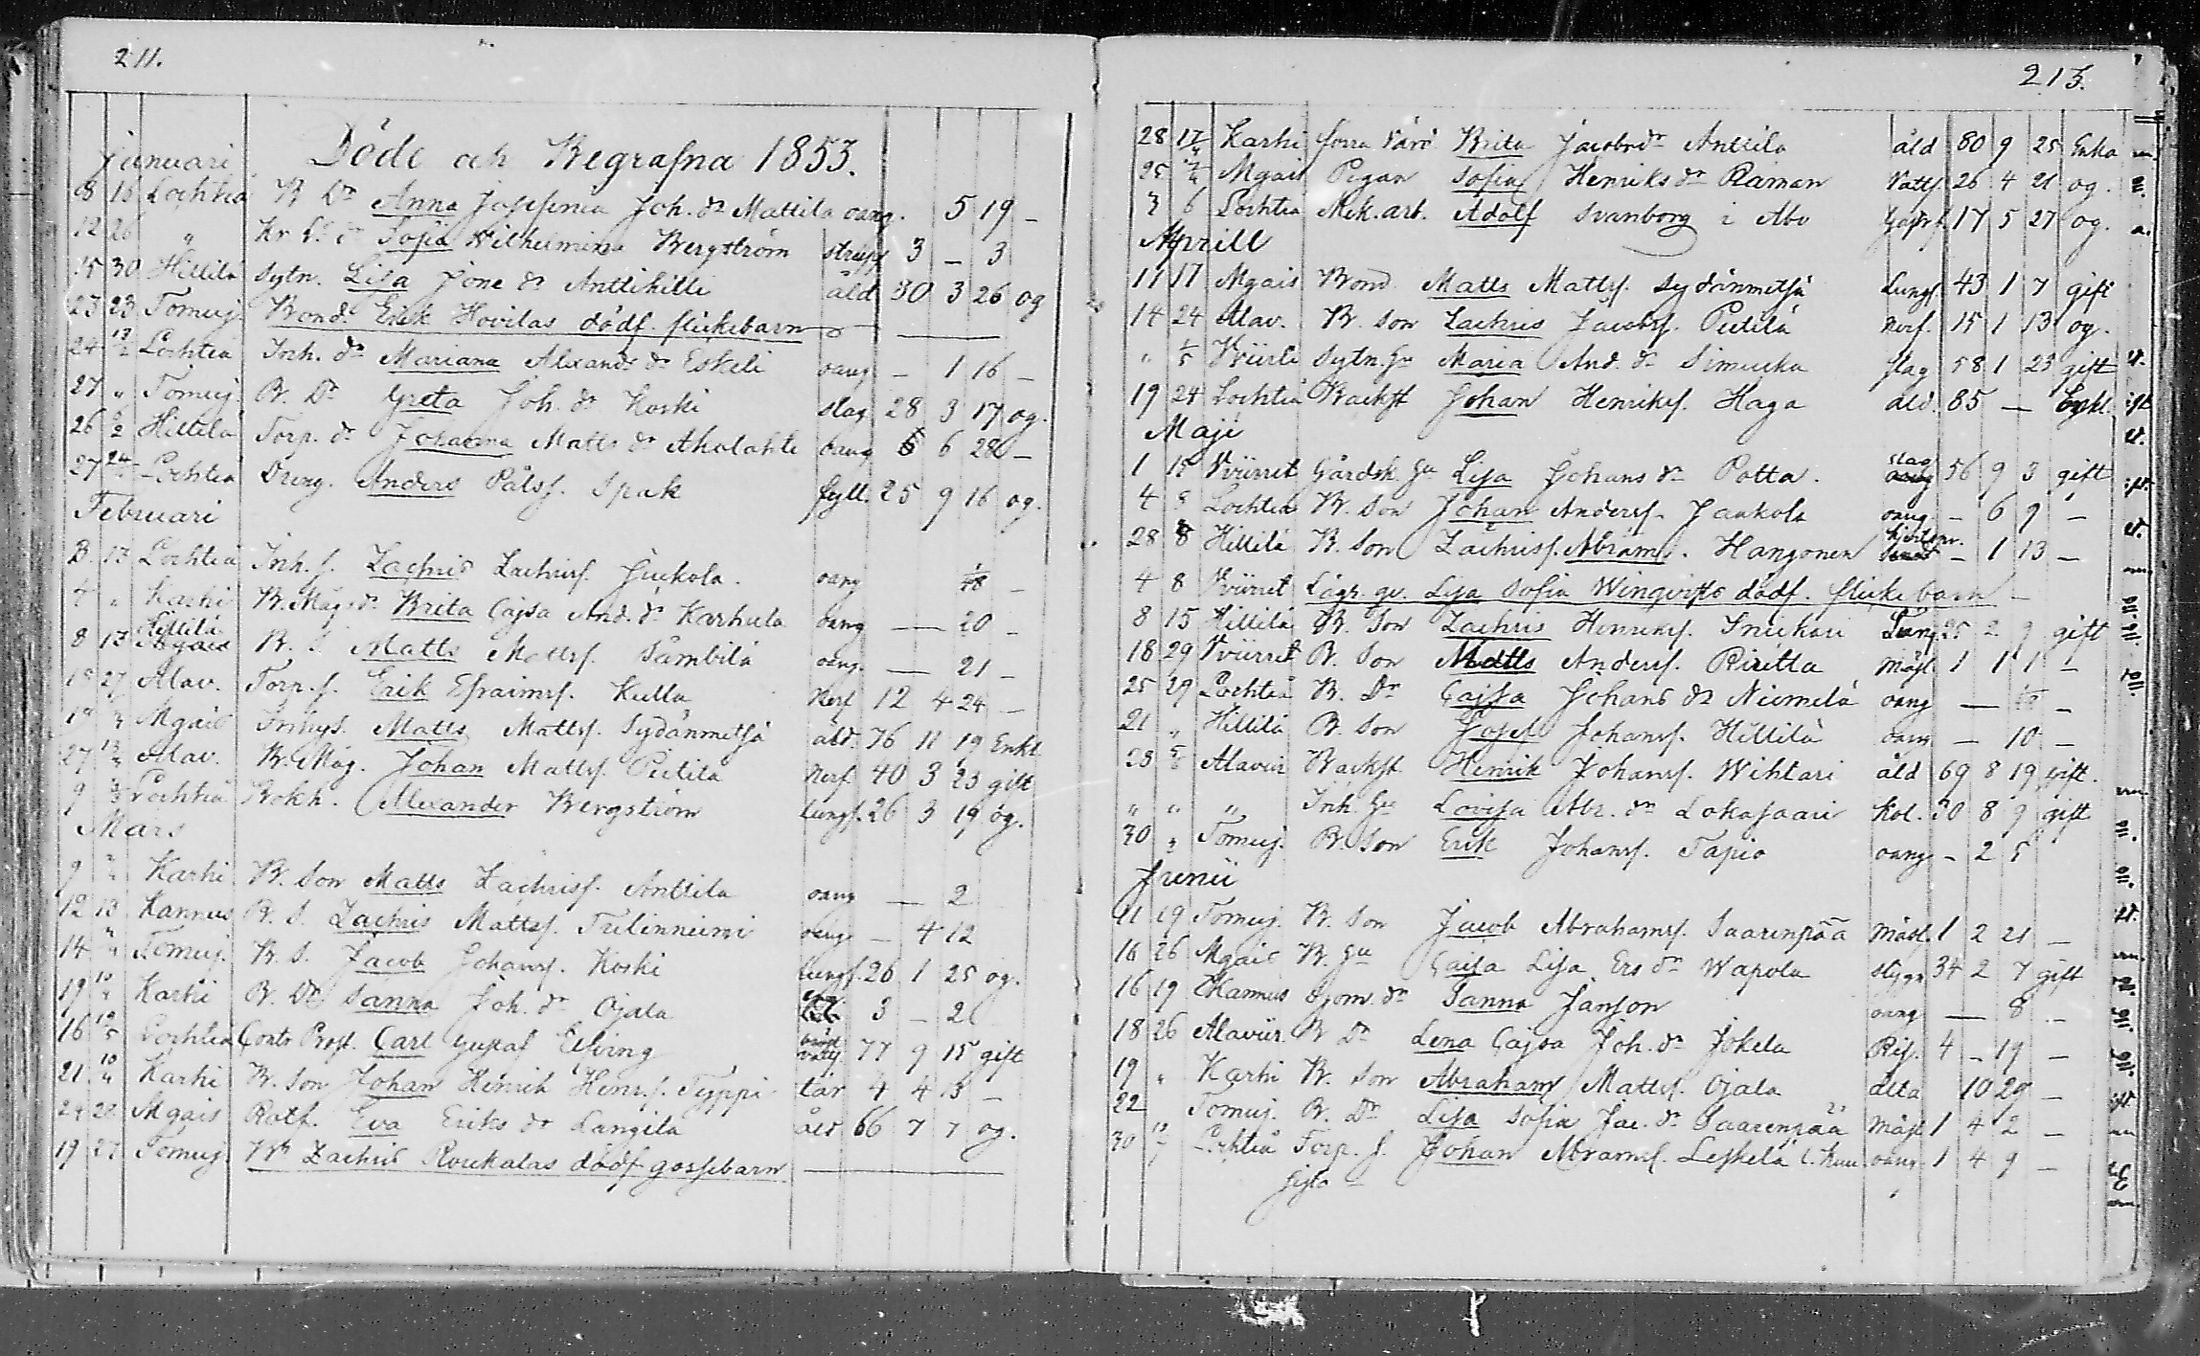 211.
Döde och Begrafna 1853.
Januari
8 16 Lochteå B Dr Anna Josefina Joh. dr Mattila oang. 5 19 –
12 26 " Sofia Wilhelmina Bergström strupp 3 – 3
15 30 Hillilä Sytn. Lisa Jone dr Anttihilli åld 30 3 26 og
23 23 Tomuj. Bond. Erik Hovilas dödf. flickebarn
24 13/2 Lochteå Inh. dr Mariana Alexand. dr Eskeli oang – 1 16 –
27 " Tomuj. B. Dr Greta Joh. dr Koski slag 28 3 17 og.
26 6/2 Hillilä Torp. dr Johanna Matts dr Aholahti oang 6 28 –
27 24 Lochteå Dreng. Anders Pålsf. Spak fyll. 25 9 16 og.
Februari
3. 13 Lochteå Inh. s. Zachris Zachrisf. Juckola. oang –
7 " Karhi B. Måg. dr Brita Cajsa And. dr Karhula oang — 20 –
8 13 Hillilä B. S. Matts Mattsf. Såmbilä oang. — 21 –
27 Alav. Torp. s. Erik Efraimsf. Kulla Nerf 12 4 24 –
Mgais Inhys. Matts Mattsf. Sydänmetsä åld. 76 11 19 Enkl.
27 13/3 Alav. B. Måg. Johan Mattsf. Peitilä Nerf. 40 3 23 gift
9 Lochteå Bokh. Alexander Bergström lungf. 26 3 19 og.
Mars
9 Karhi B. Son Matts Zachrisf. Anttila oang — 2
12 13 Kannus B. S. Zachris Mattsf. Trilinneimi oang – 4 12
14 Tomuj. B. S. Jacob Johansf. Koski lungf. 26 1 25 og.
19 10/4 Karhi B. Dr Sanna Joh. dr Ojala 3 – 2
16 Lochteå Cont. Prost. Carl Gustaf Elfving bröst vattf 77 9 15 gift
21. 10/4 Karhi B. Son Johan Henrik Henrsf. Typpi tär 4 4 13 –
24 28 Mgais Rotf. Eva Eriks dr Langila åld 66 7 7 og.
19 27 Tomuj. Zachris Roukalas dödf gossebarn
213.
28 17/4 Karhi forra Värd Brita Jacobsdr Anttila åld 80 9 25 Enka
25 Mgais Pigan Sofia Henriks dr Raman Vattf 26 4 21 og.
3 6 Lochteå Mek. arb. Adolf Svanborg i Åbo 17 5 27 og.
Aprill
11 17 Mgais Bond Matts Mattsf. Sydänmetsä Lungf. 43 1 7 gift
14 24 Alav. B. Son Zachris Jacobsf. Peitilä Nerf. 15 1 13 og.
" 1/5 Wiirre Sytn. Hu Maria And. dr Simucka slag 58 1 23 gift
19 24 Lochteå Backst Johan Henriksf. Haga åld. 85 — Enkl.
Maji
1 15 Wiirret Gårdsk. Hu Lisa Johans dr Potta. slag 56 9 3 gift
4 8 Lochteå B. Son Johan Andersf. Jaakola oang – 6 9 –
28 8 Hillilä B. Son Zachrisf. Abramf. Hangonen – 1 13 –
4 8 Wiirret Lägr. qv. Lisa Sofia Winqvists dödf. flickebarn –
8 15 Hillilä B. Son Zachris Henriksf. Snickari Lung. 25 2 9 gift
18 29 Wiirret B. Son Matts Andersf. Riutta Mäsl. 1 1 1 –
25 29 Lochteå B. Dr Cajsa Johans dr Niemelä oang — –
21 " Hillilä B. Son Josef Johansf. Hillilä oang — 10 –
23 5/6 Alaviir Backst. Henrik Johansf. Wihtari åld 69 8 19 gift.
" " " Inh. Hu Lovisa Abr. dr Lokasaari Kol. 30 8 9 gift
30 " Tomuj. B. Son Erik Johansf. Tapio oang – 2 5
Junii
11 19 Tomuj. B. Son Jacob Abrahamsf. Saarenpää Mäsl. 1 2 21 –
16 26 Mgais B. Hu Cajsa Lisa Ers dr Wapola 34 2 7 gift
16 19 Kannus Sjom. dr Sanna Janson oang — 8 –
18 26 Alaviir B Dr Lena Cajsa Joh. dr Jokela Rif. 4 – 19 –
19 " Karhi B. Son Abraham Mattsf. Ojala ålta 10 29 –
22 Tomuj. B. Dr Lisa Sofia Jac. dr Saarenpää Mäsl. 1 4 2 –
30 Lochteå Torp. s. Johan Abramsf. Leskelä oang. 1 4 9 –